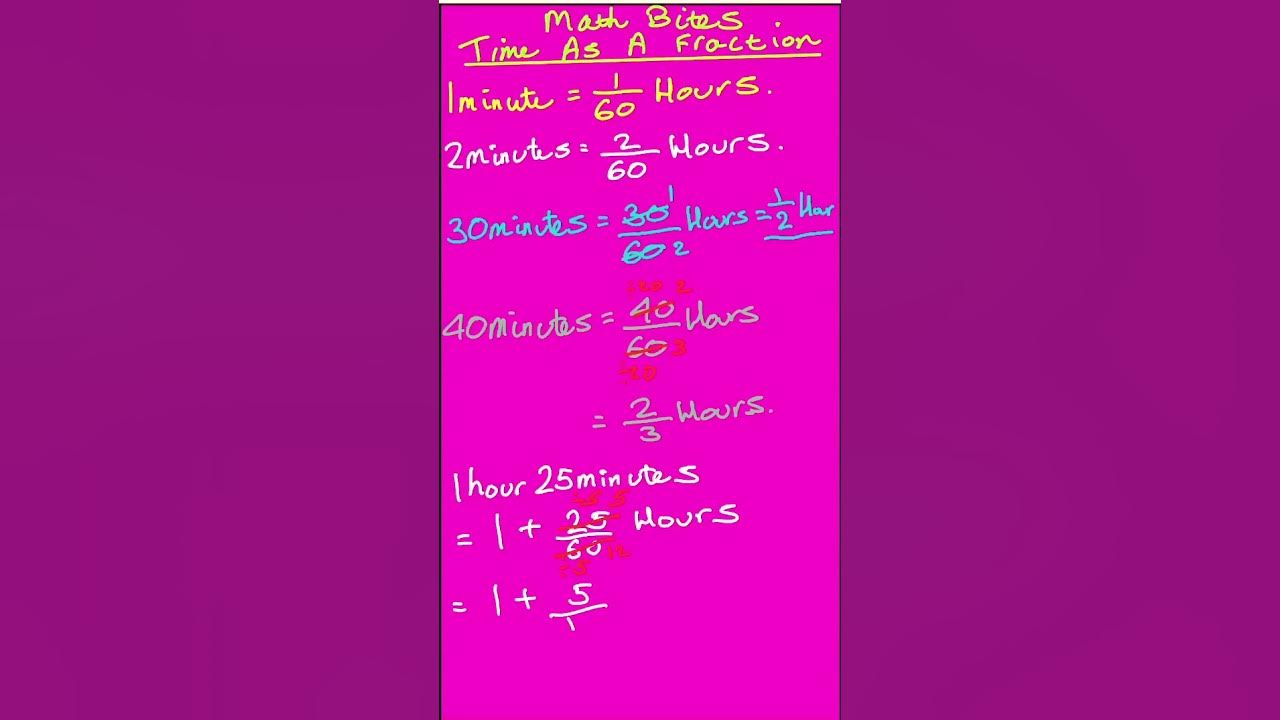 Math Bites
Time As A Fraction
1 minute = 1/60 Hours.
2 minutes = 2/60 Hours.
30 minutes = 30/60 1 2 Hours = 1/2 Hour
÷20 2
40 minutes = 40/60 Hours
3
÷20
= 2/3 Hours.
1 hour 25 minutes
÷5 5
= 1 + 25/60 Hours
12
÷5
= 1 + 5/1